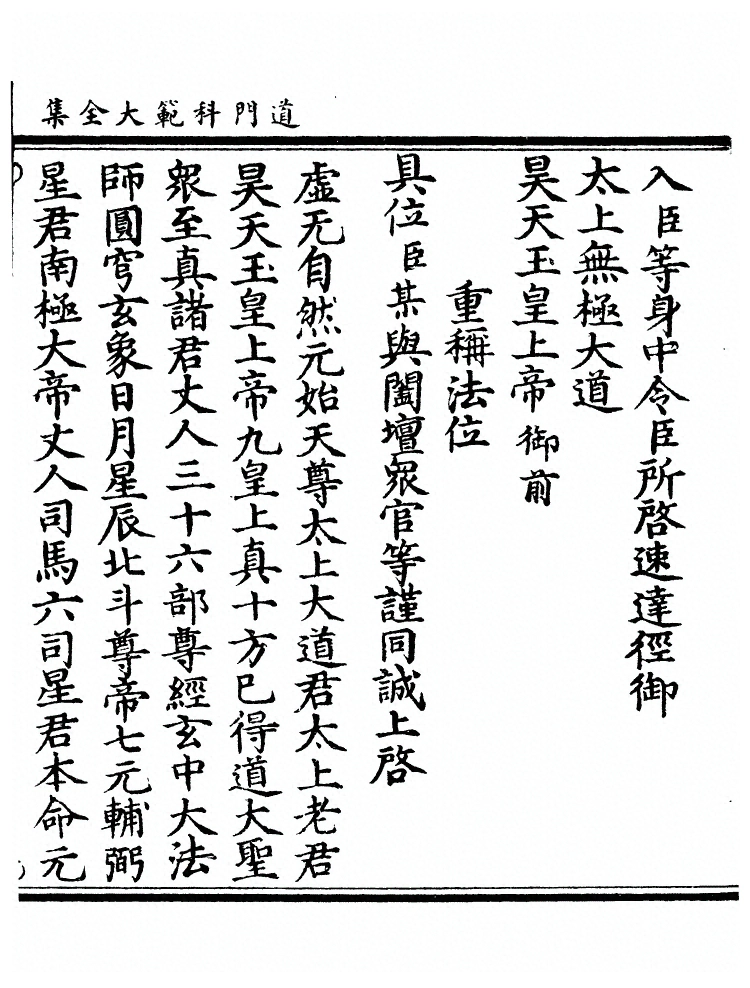 道門科範大全集
入臣等身中令臣所啓速達徑御
太上無極大道
昊天玉皇上帝御前
重稱法位
具位臣某與闔壇衆官等謹同誠上啓
虛无自然元始天尊太上大道君太上老君
昊天玉皇上帝九皇上真十方已得道大聖
衆至真諸君丈人三十六部尊經玄中大法
師圓穹玄象日月星辰北斗尊帝七元輔弼
星君南極大帝丈人司馬六司星君本命元